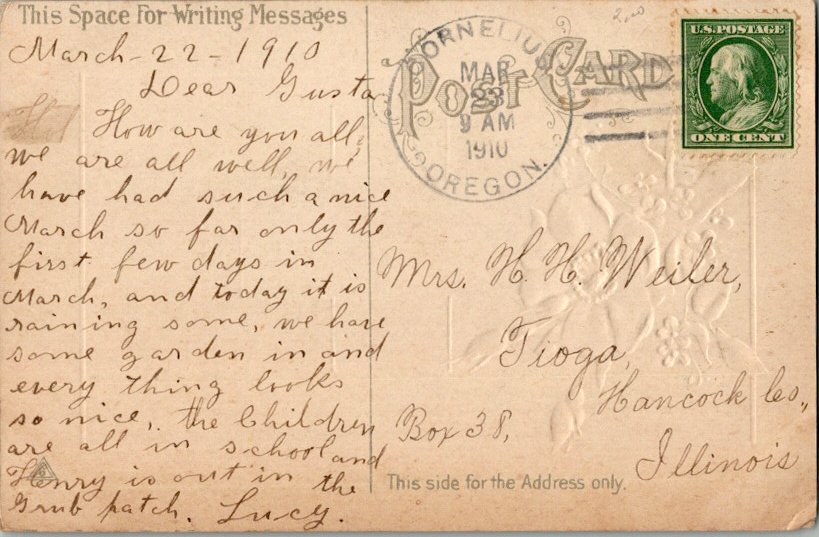 This Space For Writing Messages
March-22-1910
Dear Gusta
How are you all,
we are all well, we
have had such a nice
March so far only the
first few days in
March, and today it is
raining some, we have
some garden in and
every thing looks
so nice, the Children
are all in school and
Henry is out in the
Grub patch. Lucy.
POST CARD
CORNELIUS
MAR
23
9 AM
1910
OREGON.
U.S. POSTAGE
ONE CENT
Mrs. H. H. Weiler,
Tioga,
Hancock Co.,
Box 38,
Illinois
This side for the Address only.